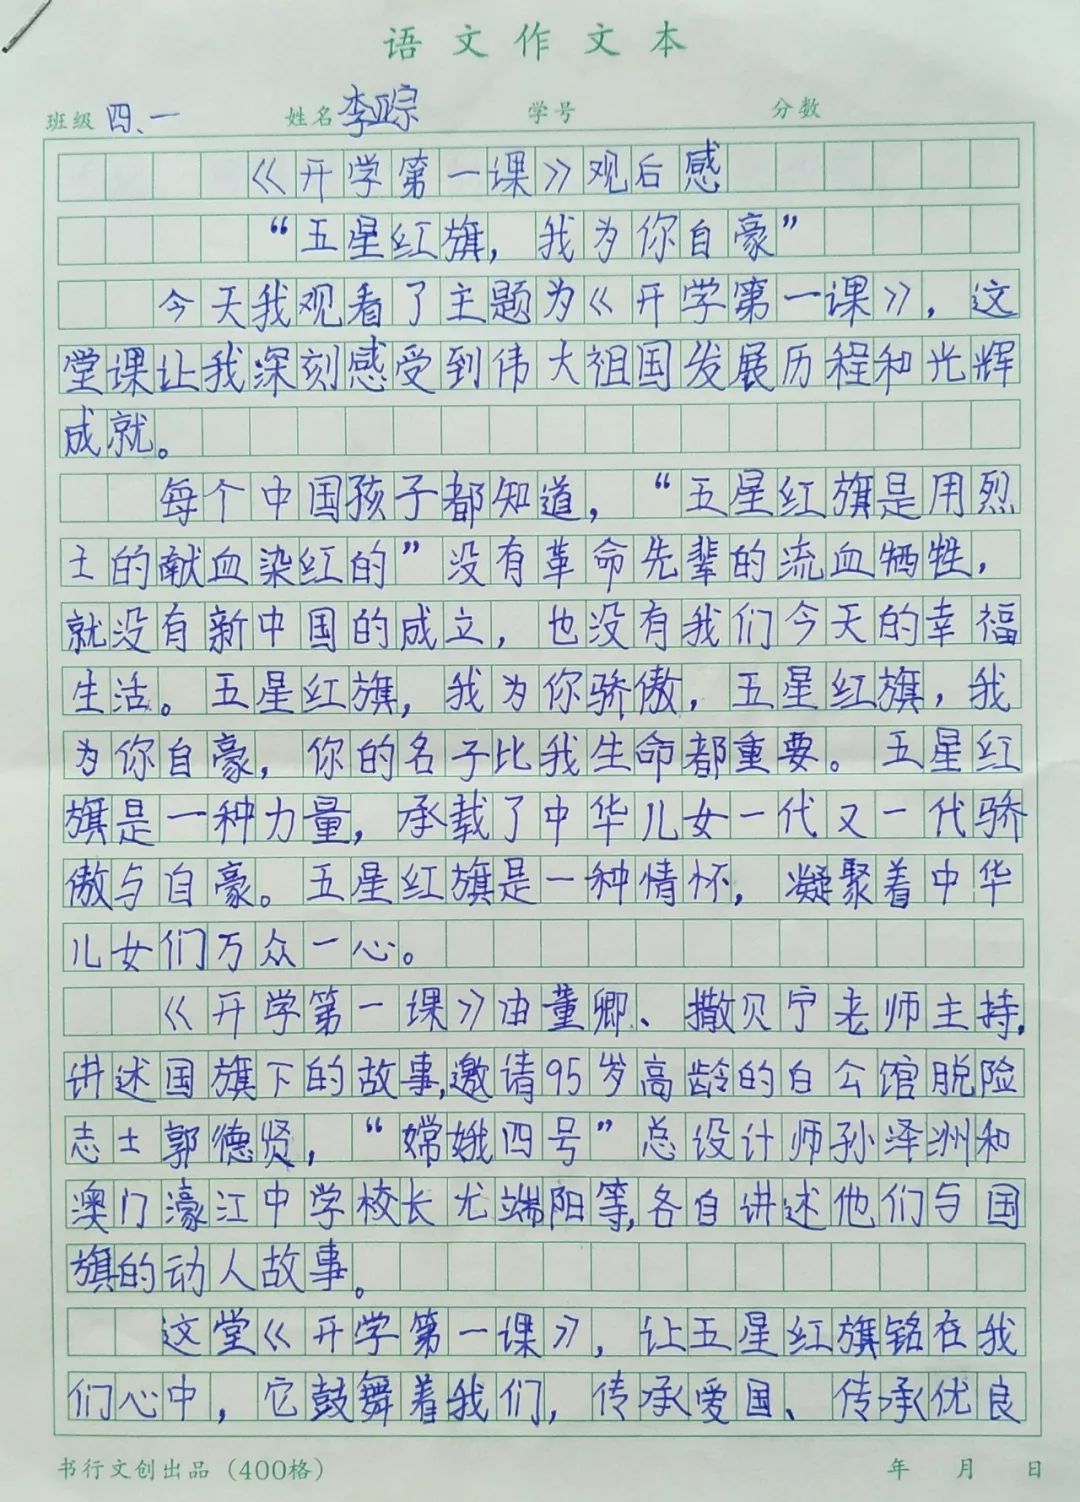 语文作文本
班级 四、一 姓名 李亚宗 学号 分数
《开学第一课》观后感
“五星红旗，我为你自豪”
今天我观看了主题为《开学第一课》，这
堂课让我深刻感受到伟大祖国发展历程和光辉
成就。
每个中国孩子都知道，“五星红旗是用烈
士的献血染红的”没有革命先辈的流血牺牲，
就没有新中国的成立，也没有我们今天的幸福
生活。五星红旗，我为你骄傲，五星红旗，我
为你自豪，你的名子比我生命都重要。五星红
旗是一种力量，承载了中华儿女一代又一代骄
傲与自豪。五星红旗是一种情怀，凝聚着中华
儿女们万众一心。
《开学第一课》由董卿、撒贝宁老师主持，
讲述国旗下的故事，邀请95岁高龄的白公馆脱险
志士郭德贤，“嫦娥四号”总设计师孙泽洲和
澳门濠江中学校长尤端阳等，各自讲述他们与国
旗的动人故事。
这堂《开学第一课》，让五星红旗铭在我
们心中，它鼓舞着我们，传承爱国、传承优良
书行文创出品（400格） 年 月 日